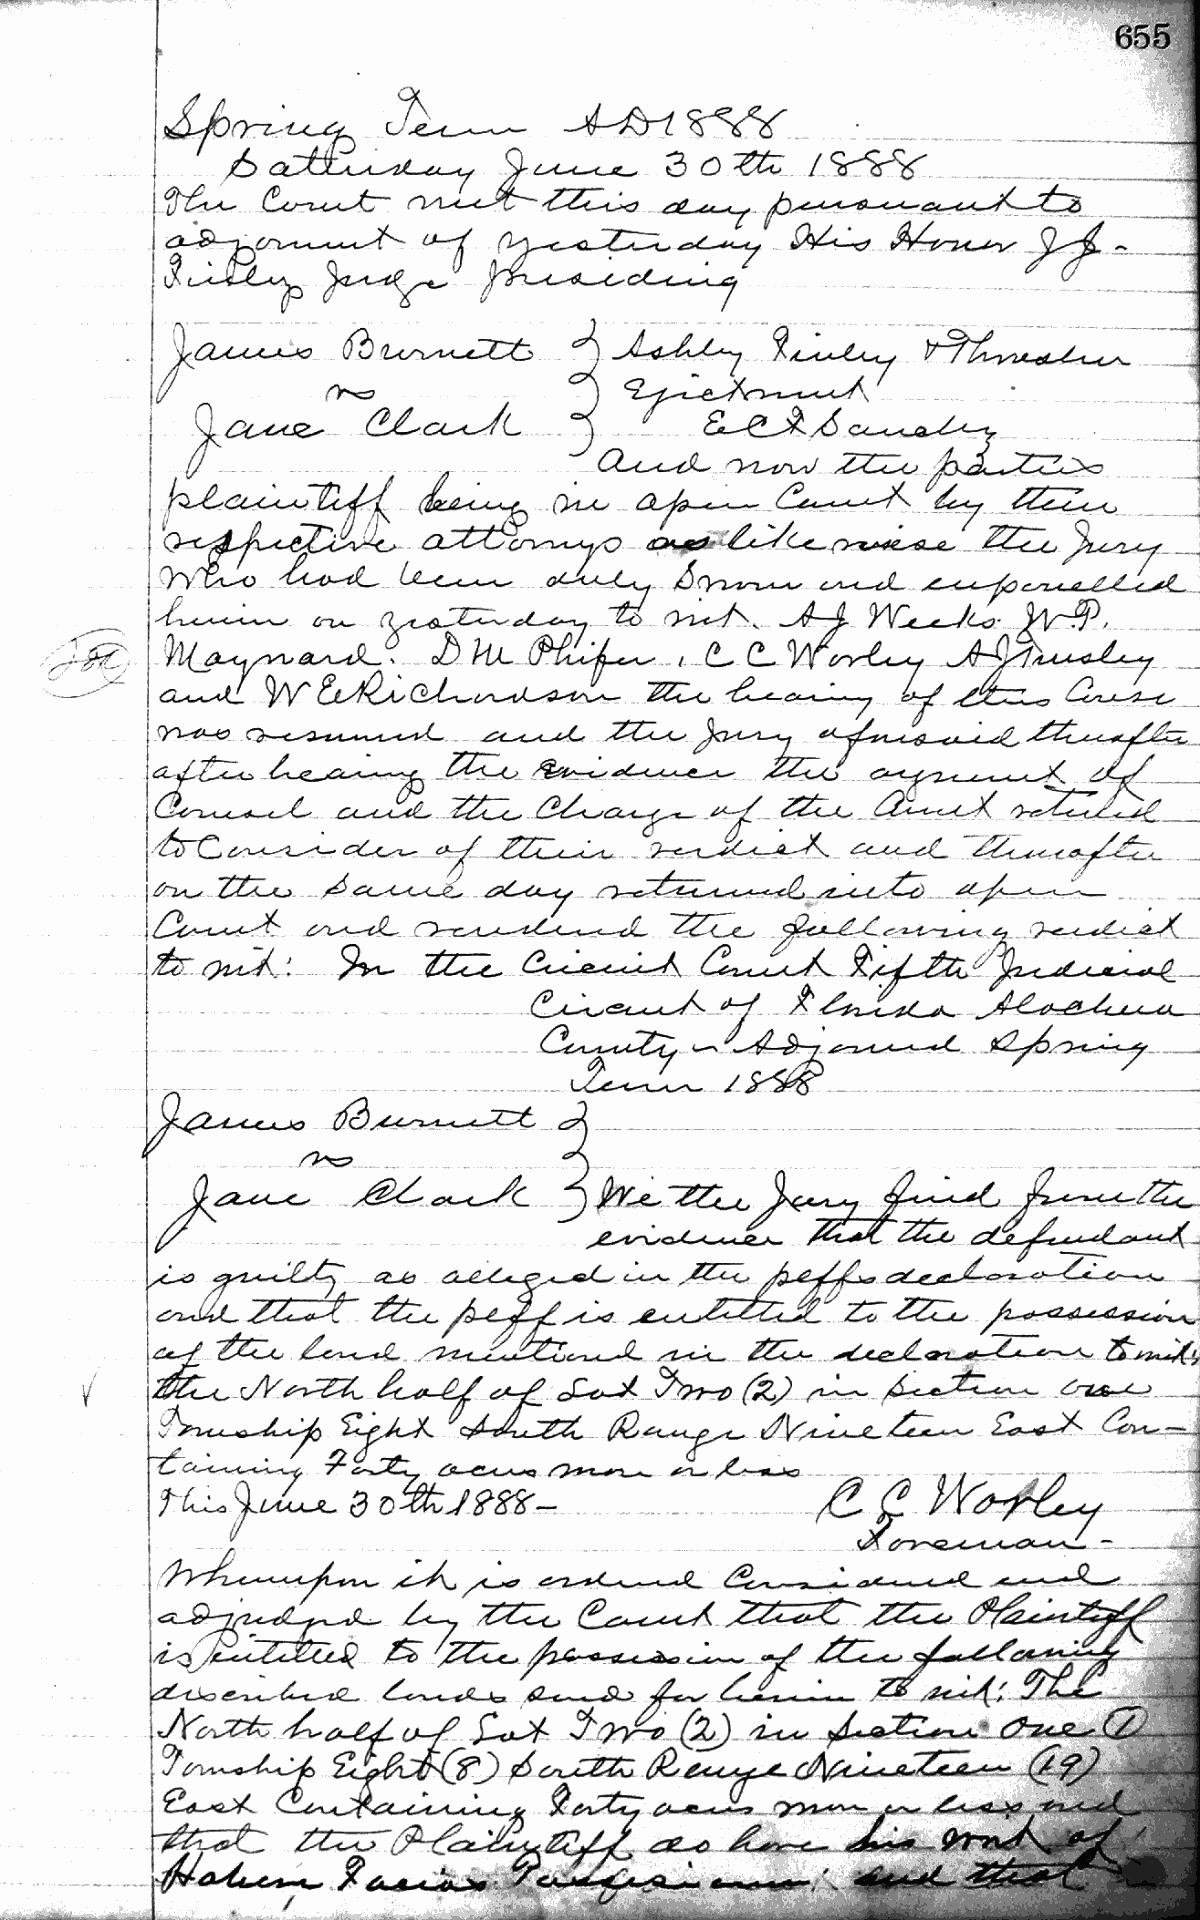 655
Spring Term AD 1888
Saturday June 30th 1888
The Court met this day pursuant to
adjornmt of yesterday His Honor J J-
Finley Judge presiding
James Burnett } Ashley Finley & Thrasher
vs } Ejectment
Jane Clark } E C F Sanchez
And now the parties
plaintiff being in open Court by their
respective attornys as likewise the Jury
who had been duly sworn and empanelled
herein on yesterday to wit. A J Weeks. W. P.
Maynard. D M Phifer, C C Worley A J Tinsley
and W E Richardson the hearing of this Cause
was resumed and the Jury aforesaid thereafter
after hearing the evidence the argument of
Counsel and the Charge of the Court retired
to Consider of their verdict and thereafter
on the same day returned into open
Court and rendered the following verdict
to wit: In the Circuit Court Fifth Judicial
Circuit of Florida Alachua
County - Adjorned Spring
Term 1888
James Burnett }
vs }
Jane Clark } We the Jury find from the
evidence that the defendant
is guilty as alleged in the plffs declaration
and that the plff is entitled to the possession
of the land mentioned in the declaration to wit;
the North half of Lot Two (2) in Section one
Township Eight South Range Nineteen East Con-
taining Forty acres more or less
This June 30th 1888 -
C C Worley
Foreman -
Whereupon it is ordered Considered and
adjudged by the Court that the Plaintiff
is entitled to the possession of the following
described lands sued for herein to wit: The
North half of Lot Two (2) in Section One (1)
Township Eight (8) South Range Nineteen (19)
East Containing Forty acres more or less and
that the Plaintiff do have his writ of
Habere Facias and that